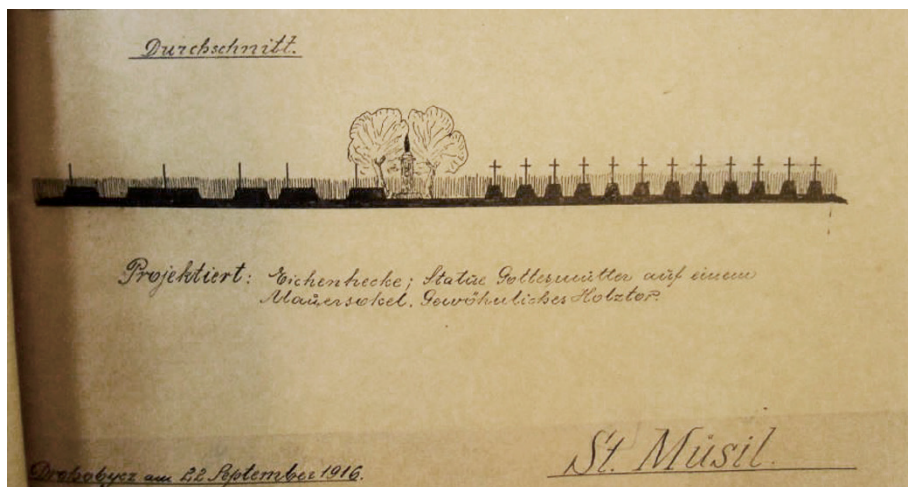 Durchschnitt.
Projektiert: Eichenhecke; Statue Gottesmutter auf einem
Mauersokel. Gewöhnliches Holztor.
Drohobycz am 22 September 1916.
St. Musil.